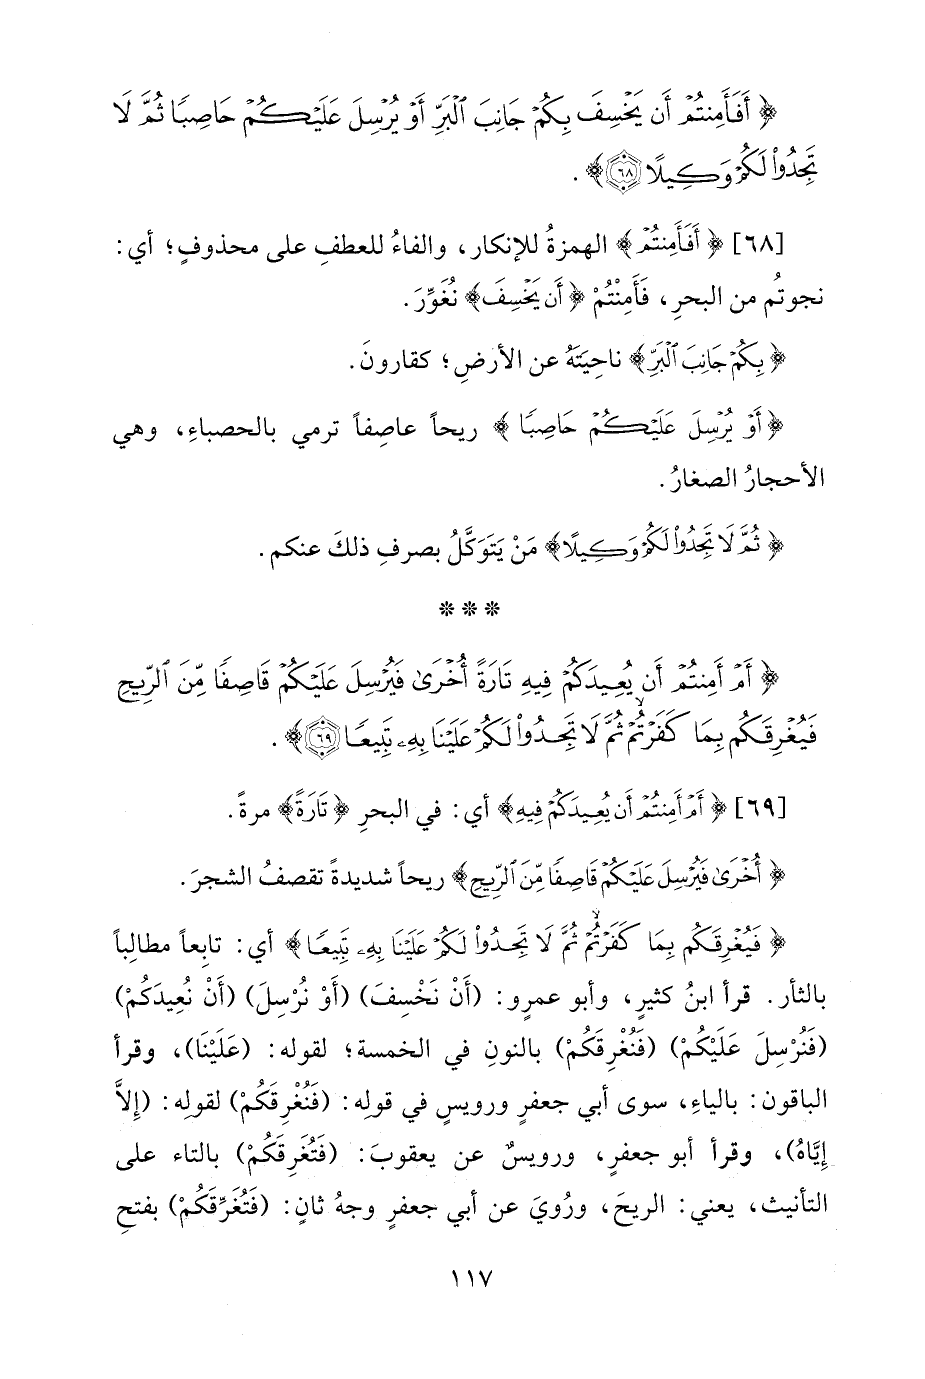 ﴿ أَفَأَمِنتُمْ أَن يَخْسِفَ بِكُمْ جَانِبَ ٱلْبَرِّ أَوْ يُرْسِلَ عَلَيْكُمْ حَاصِبًا ثُمَّ لَا
تَجِدُوا۟ لَكُمْ وَكِيلًا ﴿٦٨﴾ ﴾ .
[٦٨] ﴿ أَفَأَمِنتُمْ ﴾ الهمزةُ للإنكار، والفاءُ للعطفِ على محذوفٍ؛ أي:
نجوتُم من البحرِ، فَأَمِنْتُمْ ﴿ أَن يَخْسِفَ ﴾ نُغَوِّرَ.
﴿ بِكُمْ جَانِبَ ٱلْبَرِّ ﴾ ناحِيَتَهُ عن الأرضِ؛ كقارونَ.
﴿ أَوْ يُرْسِلَ عَلَيْكُمْ حَاصِبًا ﴾ ريحاً عاصِفاً ترمي بالحصباءِ، وهي
الأحجارُ الصغارُ.
﴿ ثُمَّ لَا تَجِدُوا۟ لَكُمْ وَكِيلًا ﴾ مَنْ يَتَوَكَّلُ بصرفِ ذلكَ عنكم.
* * *
﴿ أَمْ أَمِنتُمْ أَن يُعِيدَكُمْ فِيهِ تَارَةً أُخْرَىٰ فَيُرْسِلَ عَلَيْكُمْ قَاصِفًا مِّنَ ٱلرِّيحِ
فَيُغْرِقَكُم بِمَا كَفَرْتُمْ ۙ ثُمَّ لَا تَجِدُوا۟ لَكُمْ عَلَيْنَا بِهِۦ تَبِيعًا ﴿٦٩﴾ ﴾ .
[٦٩] ﴿ أَمْ أَمِنتُمْ أَن يُعِيدَكُمْ فِيهِ ﴾ أي: في البحرِ ﴿ تَارَةً ﴾ مرةً.
﴿ أُخْرَىٰ فَيُرْسِلَ عَلَيْكُمْ قَاصِفًا مِّنَ ٱلرِّيحِ ﴾ ريحاً شديدةً تقصفُ الشجرَ.
﴿ فَيُغْرِقَكُم بِمَا كَفَرْتُمْ ۙ ثُمَّ لَا تَجِدُوا۟ لَكُمْ عَلَيْنَا بِهِۦ تَبِيعًا ﴾ أي: تابِعاً مطالِباً
بالثأر. قرأ ابنُ كثيرٍ، وأبو عمرٍو: (أَنْ نَخْسِفَ) (أَوْ نُرْسِلَ) (أَنْ نُعِيدَكُمْ)
(فَنُرْسِلَ عَلَيْكُمْ) (فَنُغْرِقَكُمْ) بالنونِ في الخمسة؛ لقوله: (عَلَيْنَا)، وقرأ
الباقون: بالياءِ، سوى أبي جعفرٍ ورويسٍ في قولِه: (فَنُغْرِقَكُمْ) لقولِه: (إِلاَّ
إِيَّاهُ)، وقرأ أبو جعفرٍ، ورويسٌ عن يعقوبَ: (فَتُغْرِقَكُمْ) بالتاء على
التأنيث، يعني: الريحَ، ورُويَ عن أبي جعفرٍ وجهُ ثانٍ: (فَتُغَرِّقَكُمْ) بفتحِ
١١٧